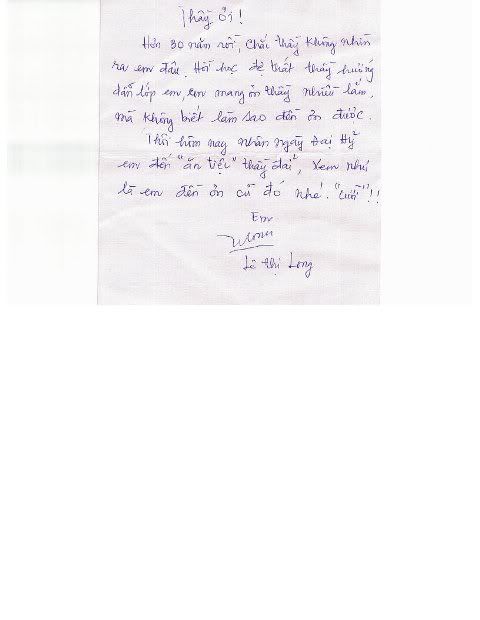 Thầy ơi!
Hơn 30 năm rồi, Chắc thầy không nhìn
ra em đâu. Hồi học đệ thất thầy hướng
dẫn lớp em, em mang ơn thầy nhiều lắm,
mà không biết làm sao đền ơn được.
Thôi hôm nay nhân ngày Đại Hỷ
em đến "ăn tiệc" thầy đãi, xem như
là em đền ơn cũ đó nhé. "cười"!!
Em
Lê thị Long